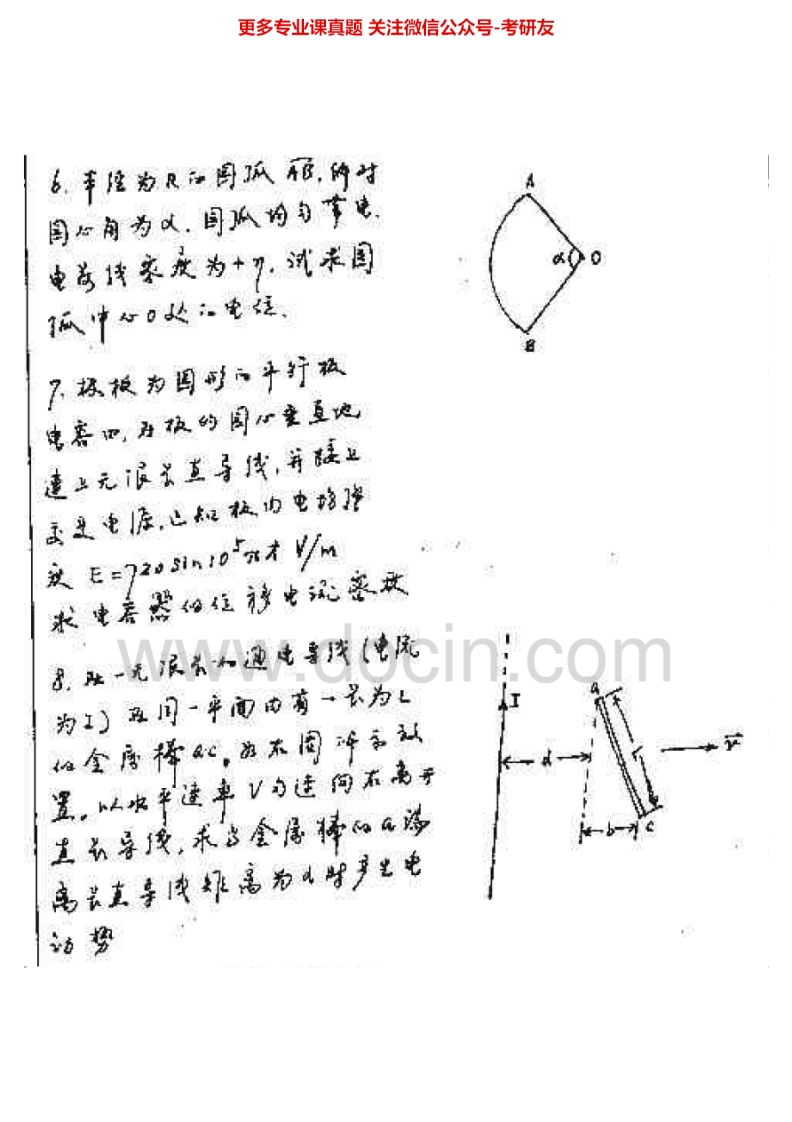 更多专业课真题 关注微信公众号-考研友
6. 半径为R的圆弧AB, 所对
圆心角为α. 圆弧均匀带电.
电荷线密度为+η. 试求圆
弧中心O处的电位.
A
α
O
B
7. 极板为圆形的平行板
电容四, 在板的圆心垂直地
连上无限长直导线, 并接上
交变电源, 已知板内电场强
度 E=720sin10⁵πt V/m
求电容器的位移电流密度
www.docin.com
8. 在一无限长的通电导线(电流
为I)在同一平面内有一长为L
的金属棒ac, 如右图所示放
置. 以水平速率V匀速向右离开
直长导线, 求当金属棒的a端
离长直导线距离为d时产生电
动势
I
a
L
d
v
b
c